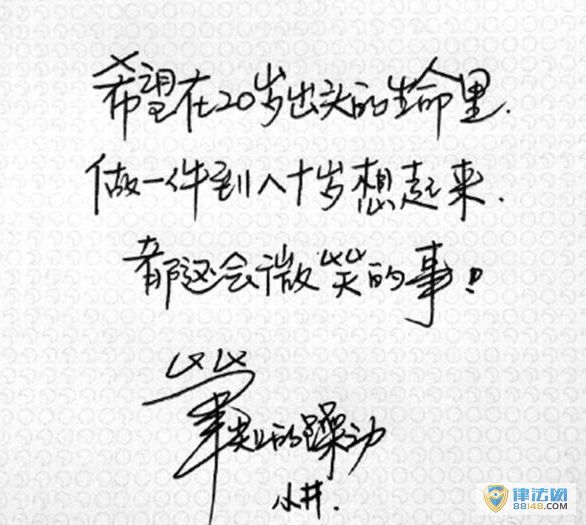 希望在20岁出头的生命里.
做一件到八十岁想起来.
都还会微笑的事!!
的躁动
小井.
律法网
88148.com